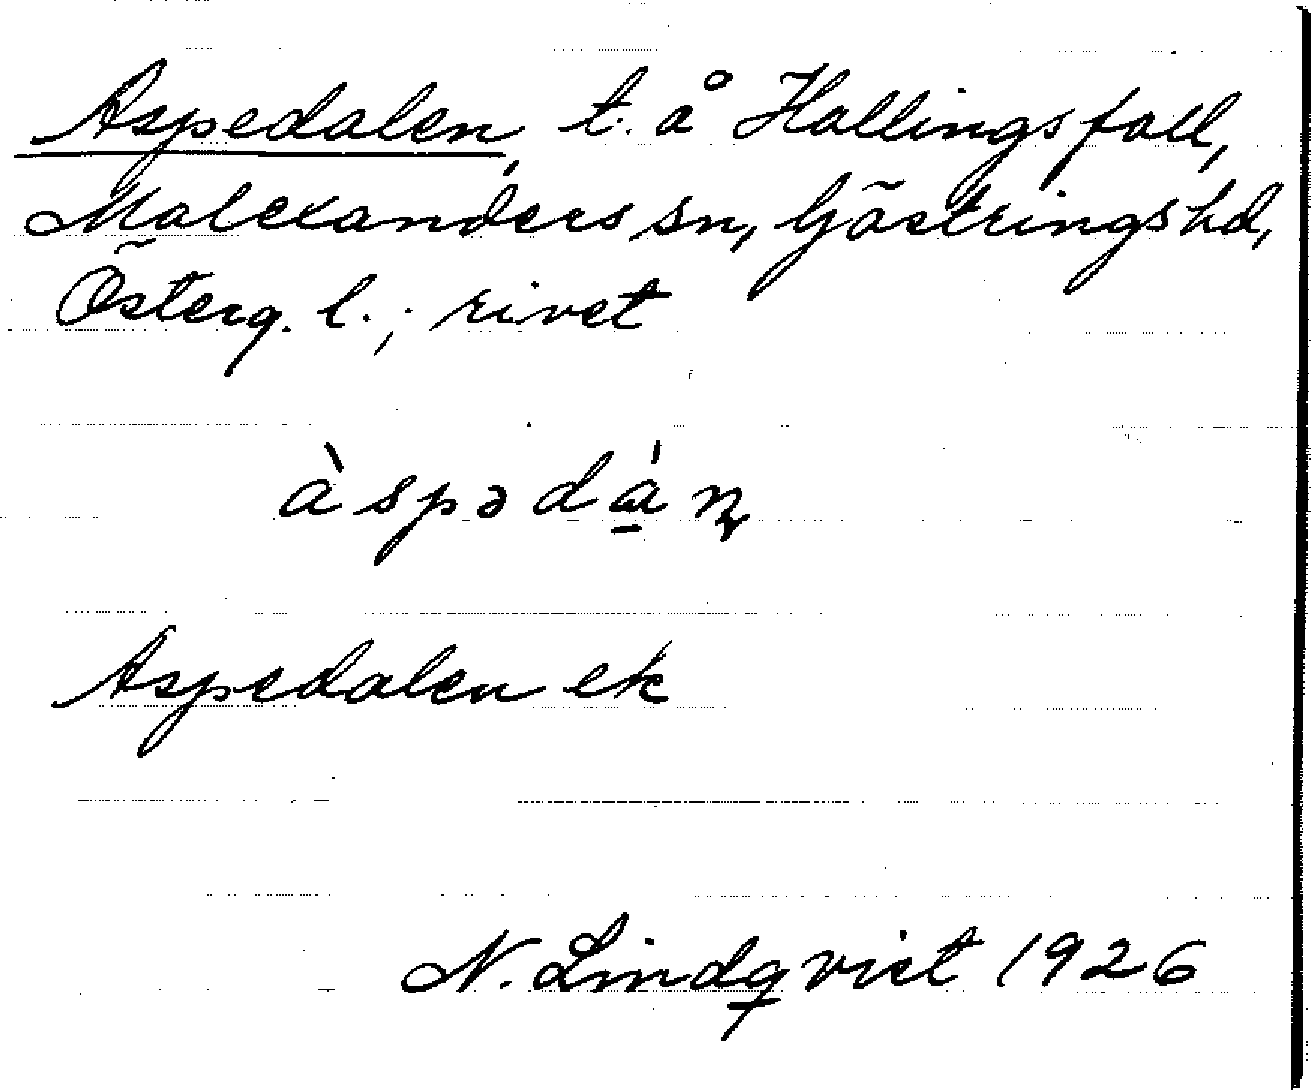 Aspedalen, t. å Hallingsfall,
Malexanders sn, Göstrings hd,
Österg. l.; rivet
àspədán
Aspedalen ek
N. Lindqvist 1926